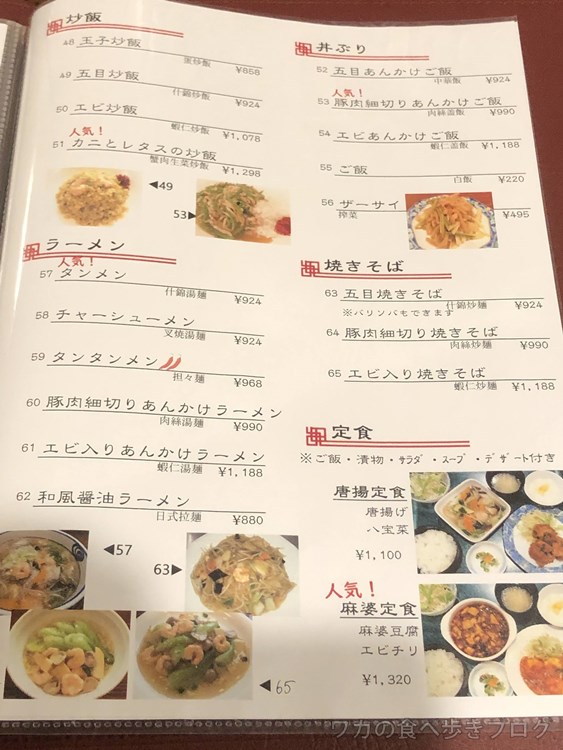 炒飯
48 玉子炒飯
蛋炒飯 ¥858
49 五目炒飯
什錦炒飯 ¥924
50 エビ炒飯
蝦仁炒飯 ¥1,078
人気！
51 カニとレタスの炒飯
蟹肉生菜炒飯 ¥1,298
◀49
53▶
ラーメン
人気！
57 タンメン
什錦湯麺 ¥924
58 チャーシューメン
叉焼湯麺 ¥924
59 タンタンメン
担々麺 ¥968
60 豚肉細切りあんかけラーメン
肉絲湯麺 ¥990
61 エビ入りあんかけラーメン
蝦仁湯麺 ¥1,188
62 和風醤油ラーメン
日式拉麺 ¥880
◀57
63▶
◀65
丼ぶり
52 五目あんかけご飯
中華飯 ¥924
人気！
53 豚肉細切りあんかけご飯
肉絲蓋飯 ¥990
54 エビあんかけご飯
蝦仁蓋飯 ¥1,188
55 ご飯
白飯 ¥220
56 ザーサイ
搾菜 ¥495
焼きそば
63 五目焼きそば
什錦炒麺 ¥924
※バリンバもできます
64 豚肉細切り焼きそば
肉絲炒麺 ¥990
65 エビ入り焼きそば
蝦仁炒麺 ¥1,188
定食
※ご飯・漬物・サラダ・スープ・デザート付き
唐揚定食
唐揚げ
八宝菜
¥1,100
人気！
麻婆定食
麻婆豆腐
エビチリ
¥1,320
ワカの食べ歩きブログ